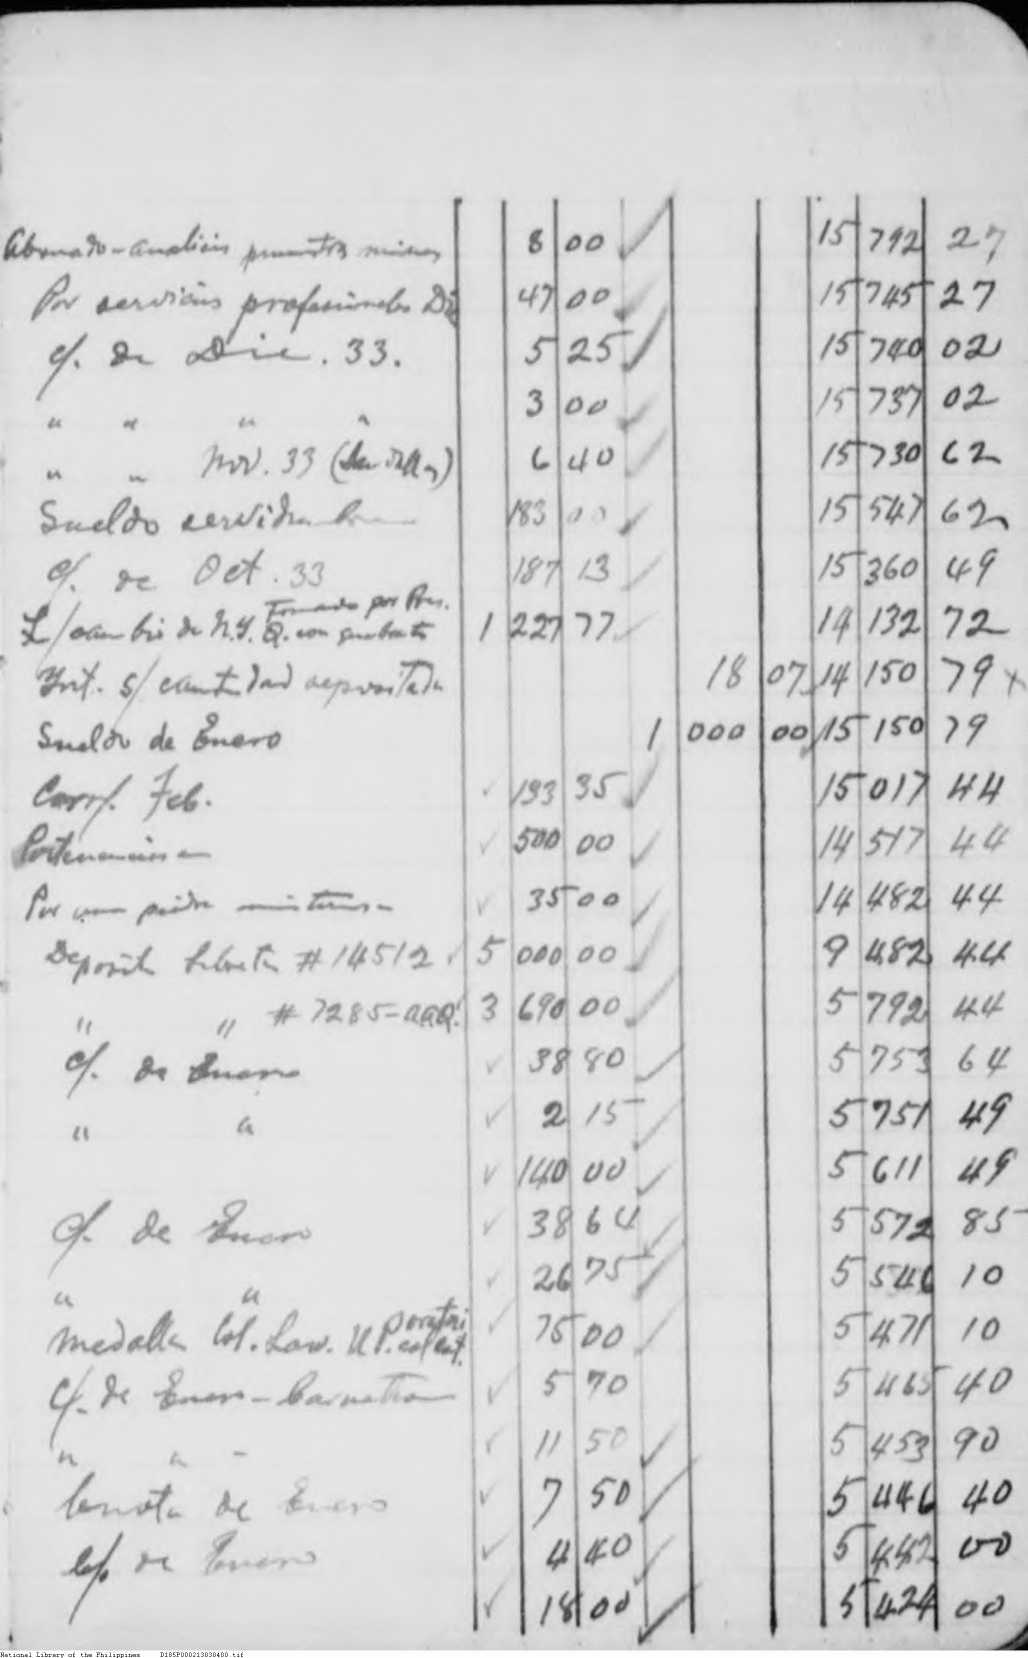 Abonado - analisis muestras minas 8 00 15 792 27
Por servicios profesionales Dic 47 00 15 745 27
c/. de Dic. 33. 5 25 15 740 02
" " " " 3 00 15 737 02
" " Nov. 33 6 40 15 730 62
Sueldo servidumbre 183 00 15 547 62
c/. de Oct. 33 187 13 15 360 49
Tomado por Pres.
L/cambio de N.Y. Q. con 1 227 77 14 132 72
Int. s/ cantidad depositada 18 07 14 150 79 x
Sueldo de Enero 1 000 00 15 150 79
Corr/. Feb. 133 35 15 017 44
500 00 14 517 44
Por una piedra 35 00 14 482 44
Deposito Libreta # 14512 5 000 00 9 482 44
" " # 7285-AAQ. 3 690 00 5 792 44
c/. de Enero 38 80 5 753 64
" " 2 15 5 751 49
140 00 5 611 49
c/. de Enero 38 64 5 572 85
" " 26 75 5 546 10
Medalla Col. Law. U.P. 75 00 5 471 10
c/. de Enero - Carnation 5 70 5 465 40
" " - 11 50 5 453 90
Cuota de Enero 7 50 5 446 40
c/. de Enero 4 40 5 442 00
18 00 5 424 00
National Library of the Philippines D185P000213030400.tif